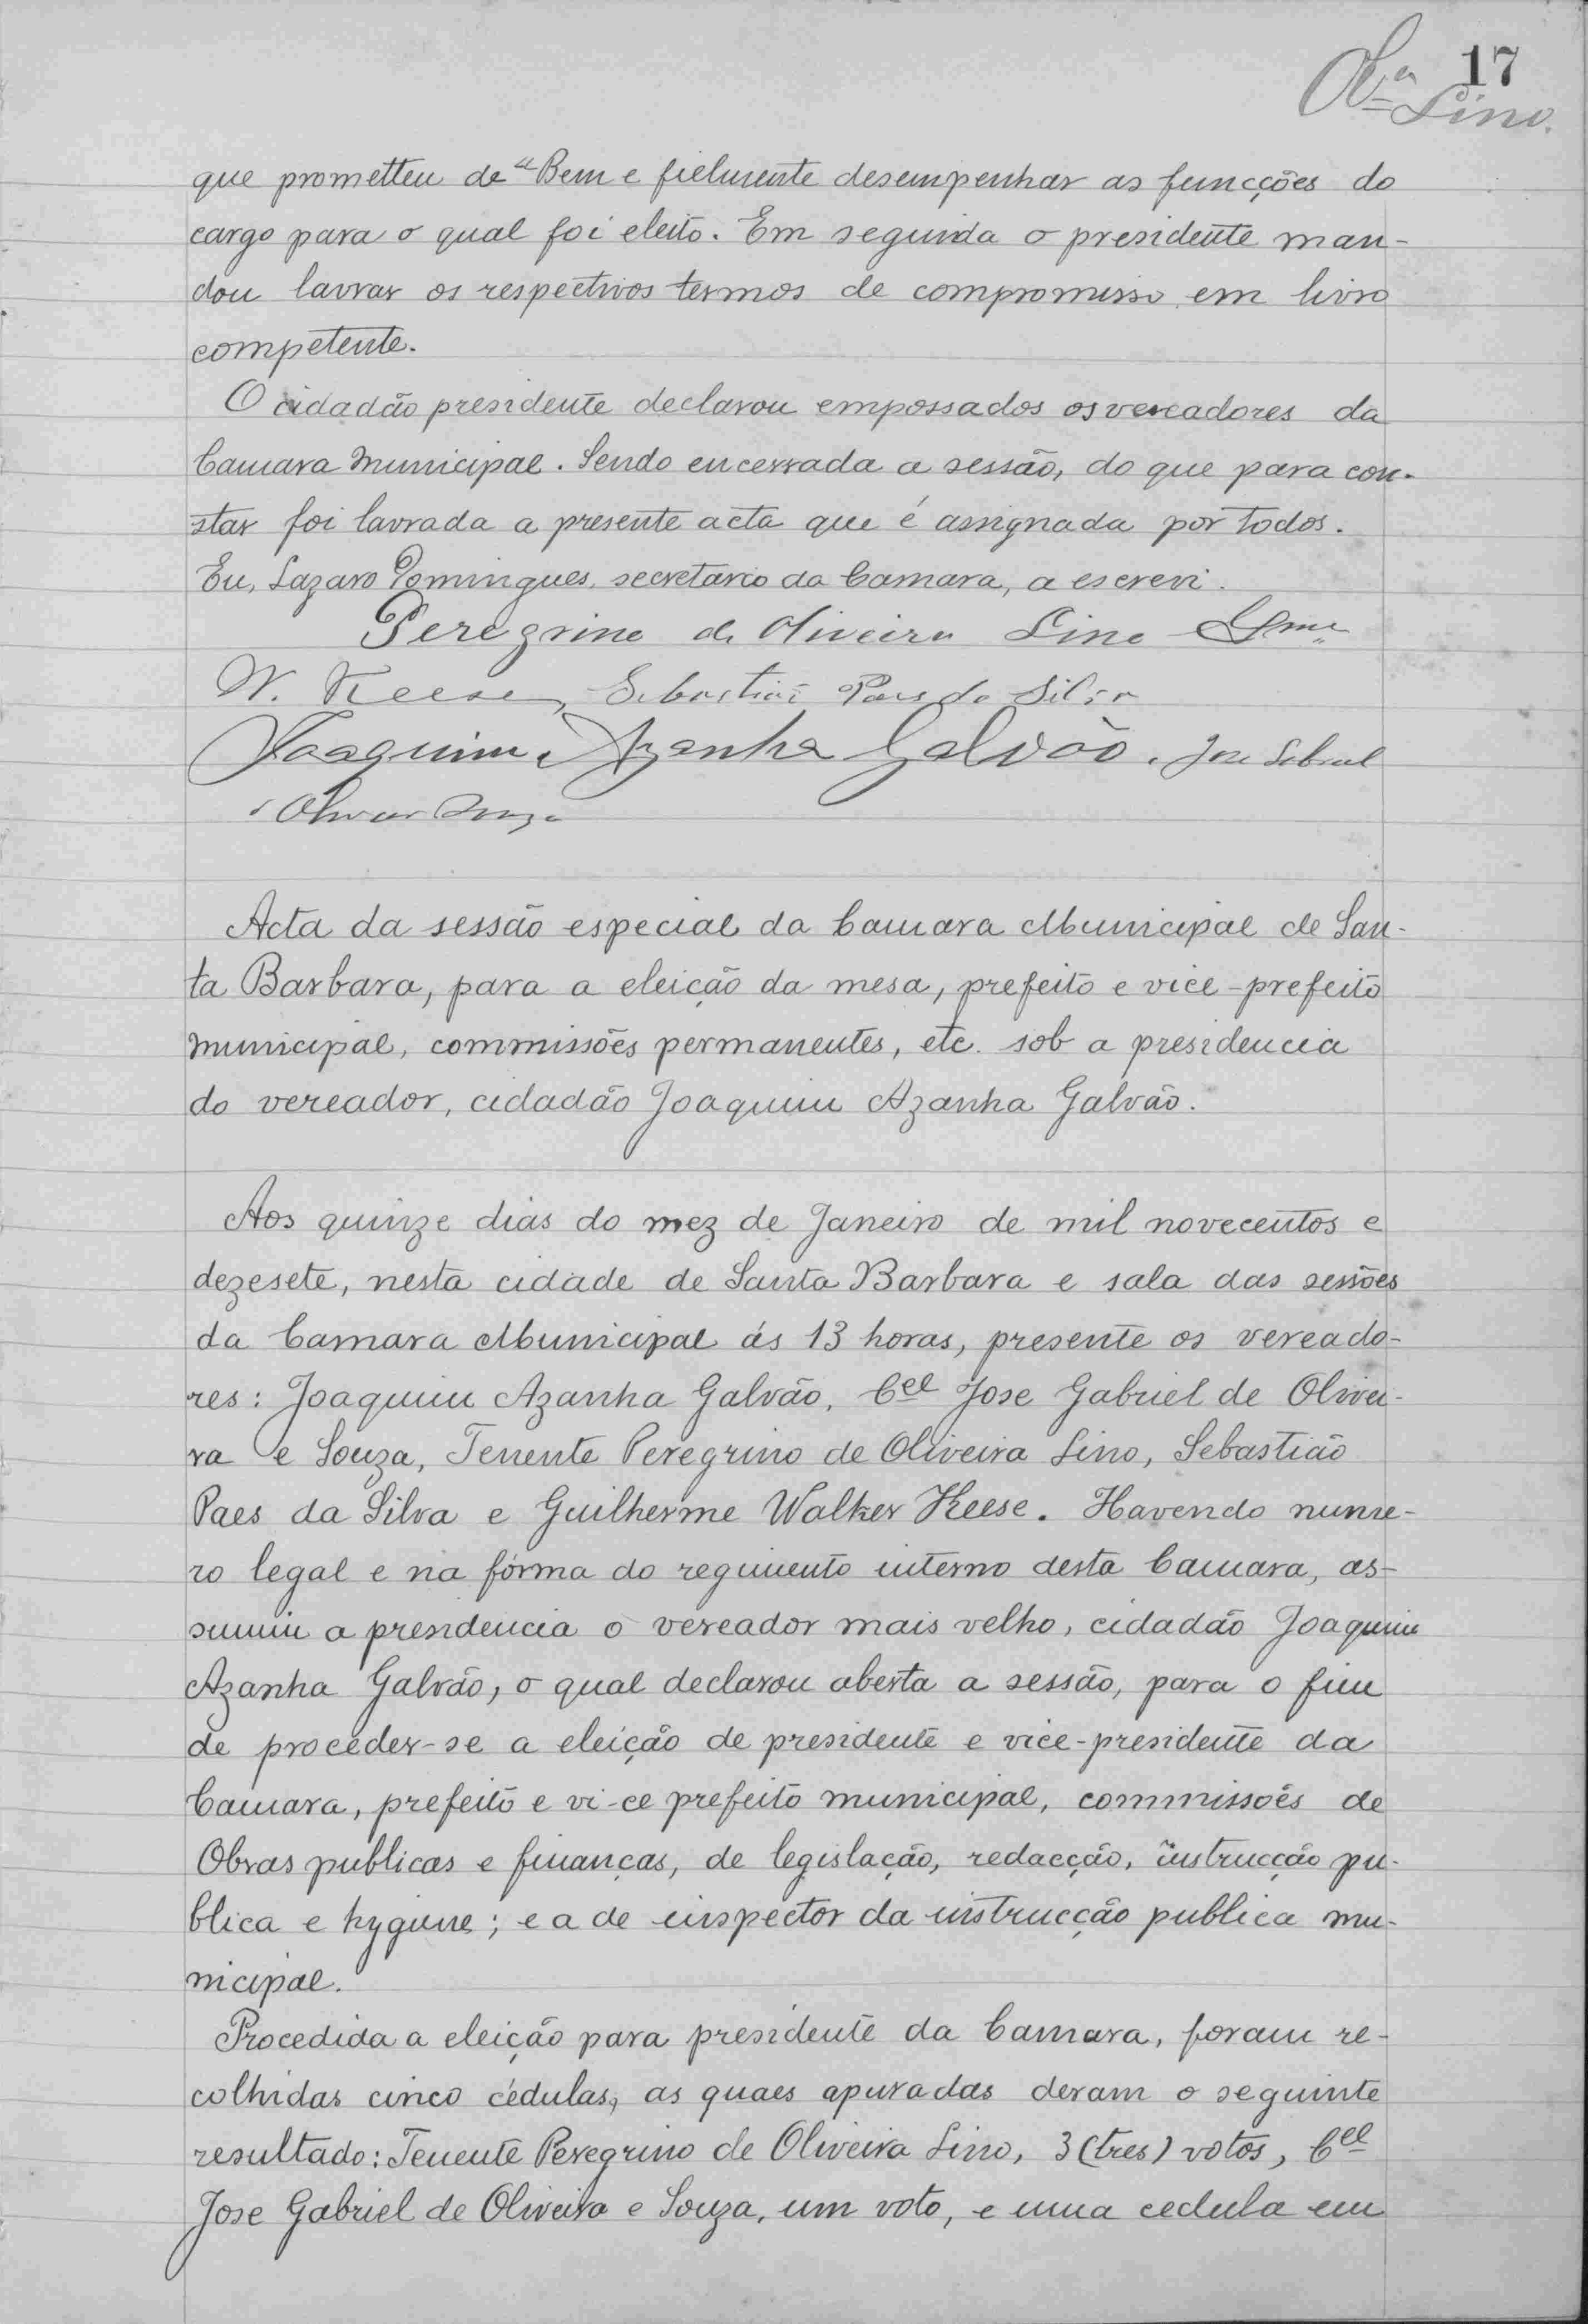 17
Olª Lino.
que prometteu de "Bem e fielmente desempenhar as funcções do
cargo para o qual foi eleito. Em seguida o presidente man-
dou lavrar os respectivos termos de compromisso em livro
competente.
O cidadão presidente declarou empossados os vereadores da
Camara Municipal. Sendo encerrada a sessão, do que para con-
star foi lavrada a presente acta que é assignada por todos.
Eu, Lazaro Domingues, secretario da Camara, a escrevi.
Peregrino de Oliveira Lino Gme
W. Keese, Sebastião Paes da Silva
Joaquim Azanha Galvão. Jose Gabriel
d' Oliveira Souza
Acta da sessão especial da Camara Municipal de San-
ta Barbara, para a eleição da mesa, prefeito e vice-prefeito
municipal, commissões permanentes, etc. sob a presidencia
do vereador, cidadão Joaquim Azanha Galvão.
Aos quinze dias do mez de Janeiro de mil novecentos e
dezesete, nesta cidade de Santa Barbara e sala das sessões
da Camara Municipal ás 13 horas, presente os vereado-
res: Joaquim Azanha Galvão, Cel Jose Gabriel de Olivei-
ra e Souza, Tenente Peregrino de Oliveira Lino, Sebastião
Paes da Silva e Guilherme Walker Keese. Havendo nume-
ro legal e na fórma do regimento interno desta Camara, as-
sumiu a presidencia o vereador mais velho, cidadão Joaquim
Azanha Galvão, o qual declarou aberta a sessão, para o fim
de proceder-se a eleição de presidente e vice-presidente da
Camara, prefeito e vi-ce prefeito municipal, commissões de
Obras publicas e finanças, de legislação, redacção, instrucção pu-
blica e hygiene; e a de inspector da instrucção publica mu-
nicipal.
Procedida a eleição para presidente da Camara, foram re-
colhidas cinco cédulas, as quaes apuradas deram o seguinte
resultado: Tenente Peregrino de Oliveira Lino, 3 (tres) votos, Cel
Jose Gabriel de Oliveira e Souza, um voto, e uma cedula em